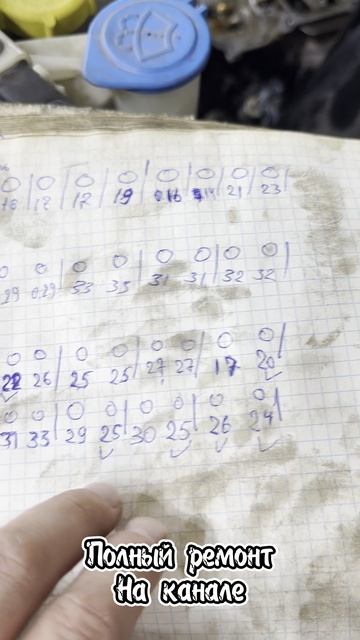 18 | 12 | 12 | 19 | 0,16 | 14 | 21 | 23 |
29 0,29 | 33 35 | 31 31 | 32 32 |
22 26 | 25 25 | 27 27 | 17 20 |
31 33 | 29 25 | 30 25 | 26 24 |
Полный ремонт
На канале